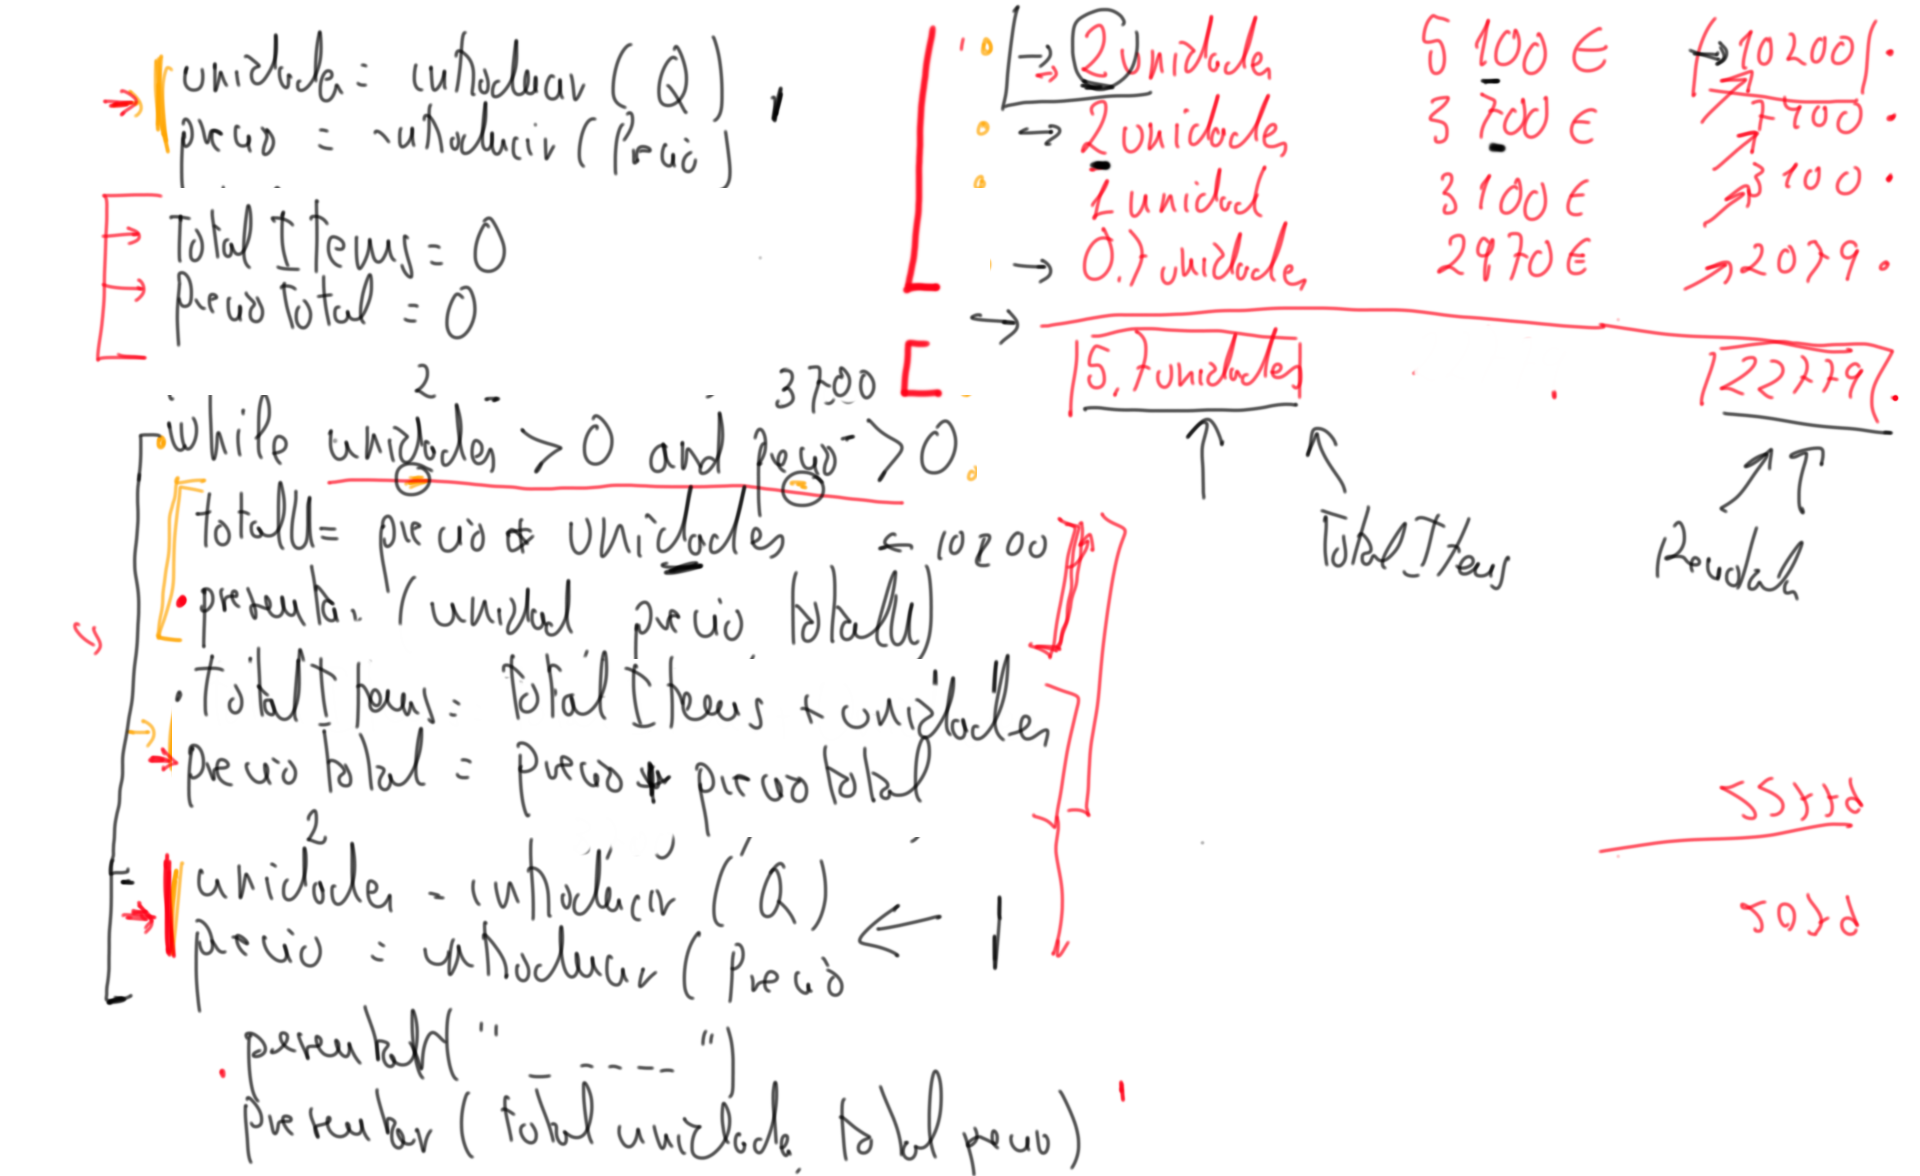 unidades = introducir (Q)
precio = introducir (Precio)
Total Items = 0
Precio Total = 0
2 3700
while unidades > 0 and precio > 0
totalU = precio * unidades ← 10200
presentar (unidad precio totalU)
Total Items = Total Items + unidades
precio total = precio + precio total
2
unidades = introducir (Q)
precio = introducir (Precio
presentar (" _ - - - - ")
presentar (total unidades, total precio)
→ 2 unidades 5100 € → 10200
→ 2 unidades 3700 € 7400
1 unidad 3100 € 3100
→ 0.7 unidades 2970 € 2079
5.7 unidades 22779
Total Items